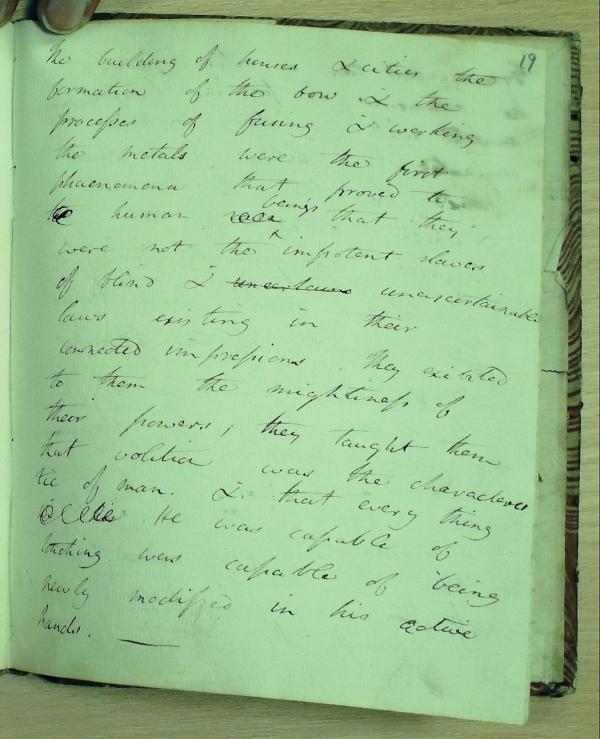 19
The building of houses & cities the
formation of the bow & the
processes of fusing & working
the metals were the first
phaenomena that proved to
the human race beings that they
were not the impotent slaves
of blind & uncertain unascertainable
laws existing in their
connected impressions. They exibited
to them the mightiness of
their powers; they taught them
that volition was the characteris
tic of man. & that every thing
He was capable of
touching was capable of being
newly modified in his active
hands.